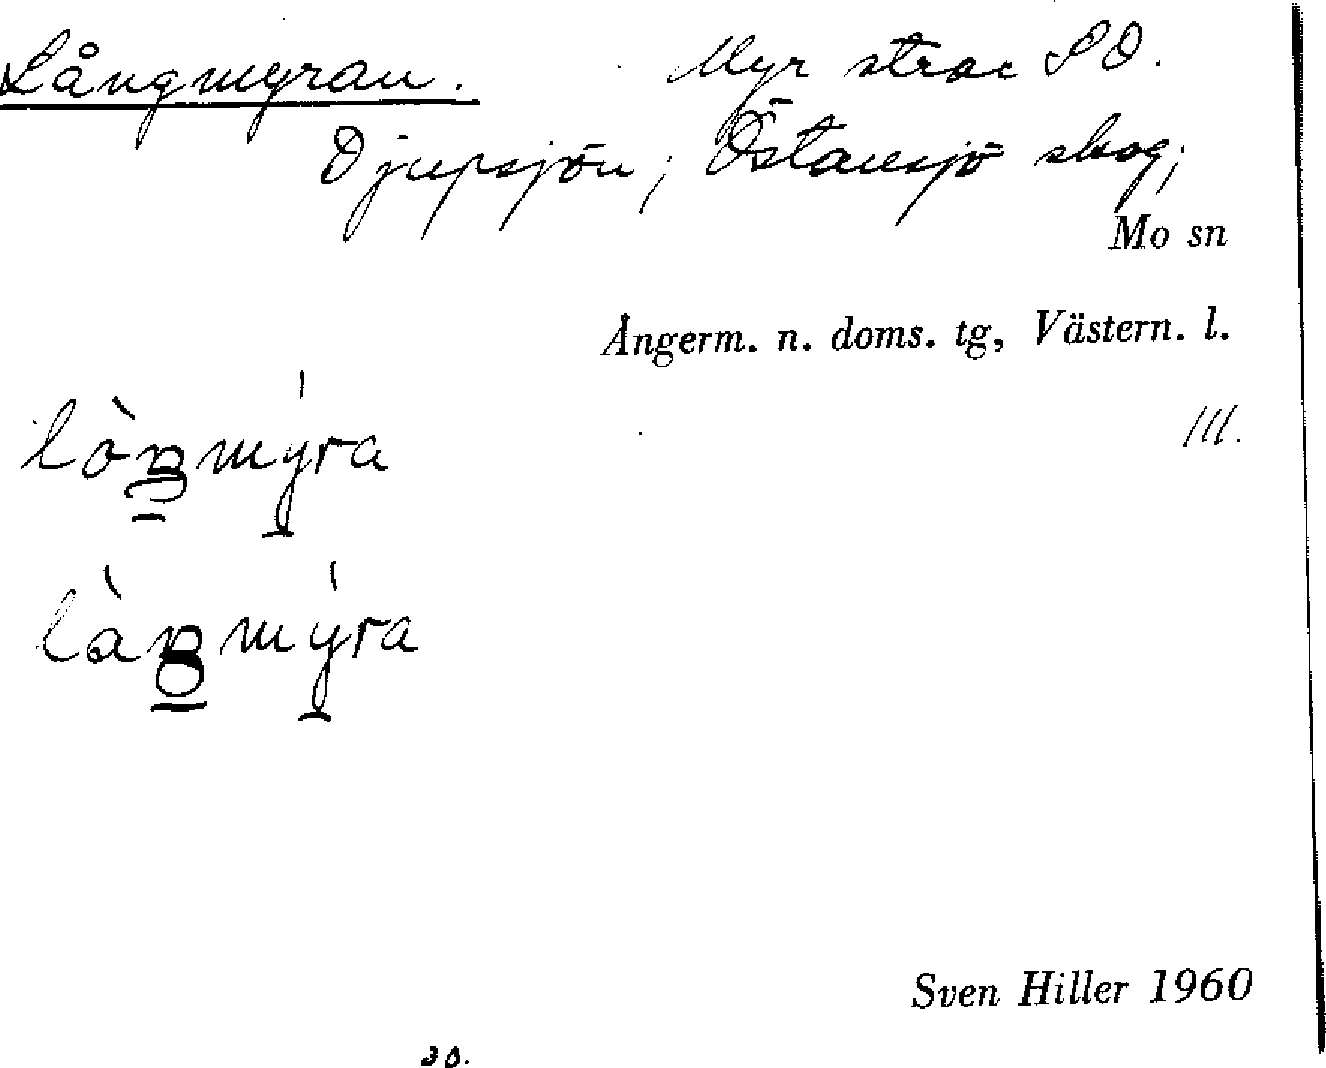 Långmyran. Myr strax SO.
Djupsjön; Östansjö skog;
Mo sn
Ångerm. n. doms. tg, Västern. l.
lòŋmýra
III.
làŋmýra
Sven Hiller 1960
30.